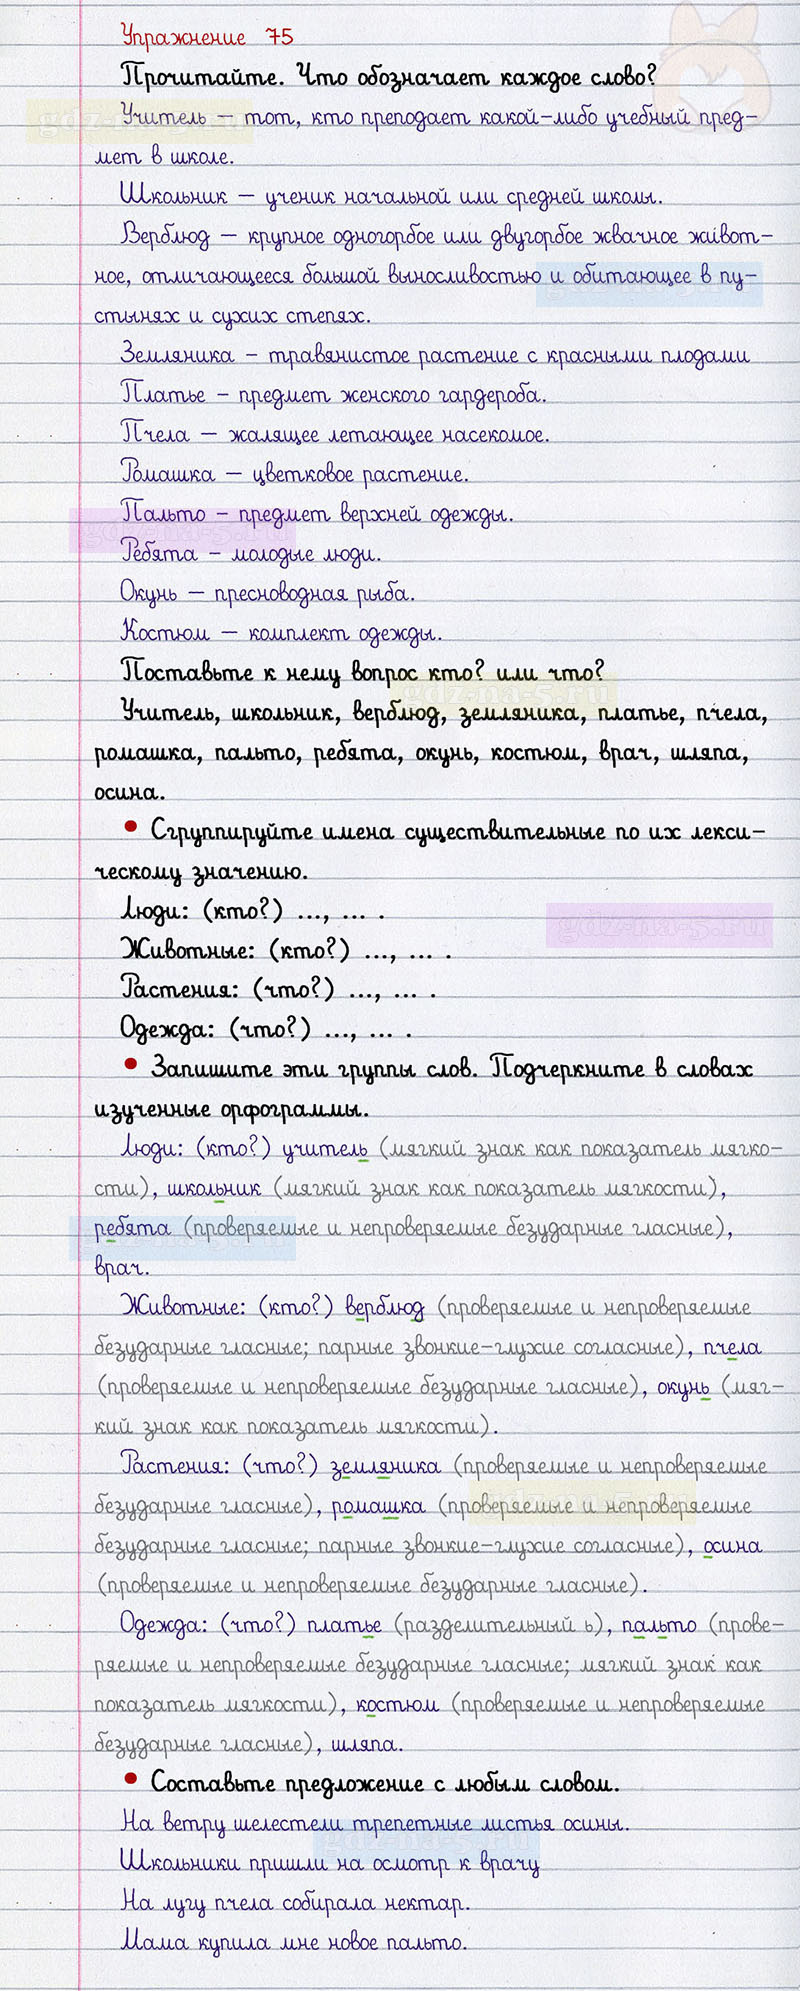 Упражнение 75
Прочитайте. Что обозначает каждое слово?
Учитель – тот, кто преподает какой-либо учебный пред-
мет в школе.
Школьник – ученик начальной или средней школы.
Верблюд – крупное одногорбое или двугорбое жвачное живот-
ное, отличающееся большой выносливостью и обитающее в пу-
стынях и сухих степях.
Земляника – травянистое растение с красными плодами
Платье – предмет женского гардероба.
Пчела – жалящее летающее насекомое.
Ромашка – цветковое растение.
Пальто – предмет верхней одежды.
Ребята – молодые люди.
Окунь – пресноводная рыба.
Костюм – комплект одежды.
Поставьте к нему вопрос кто? или что?
Учитель, школьник, верблюд, земляника, платье, пчела,
ромашка, пальто, ребята, окунь, костюм, врач, шляпа,
осина.
• Сгруппируйте имена существительные по их лекси-
ческому значению.
Люди: (кто?) ..., ... .
Животные: (кто?) ..., ... .
Растения: (что?) ..., ... .
Одежда: (что?) ..., ... .
• Запишите эти группы слов. Подчеркните в словах
изученные орфограммы.
Люди: (кто?) учитель (мягкий знак как показатель мягко-
сти), школьник (мягкий знак как показатель мягкости),
ребята (проверяемые и непроверяемые безударные гласные),
врач.
Животные: (кто?) верблюд (проверяемые и непроверяемые
безударные гласные; парные звонкие-глухие согласные), пчела
(проверяемые и непроверяемые безударные гласные), окунь (мяг-
кий знак как показатель мягкости).
Растения: (что?) земляника (проверяемые и непроверяемые
безударные гласные), ромашка (проверяемые и непроверяемые
безударные гласные; парные звонкие-глухие согласные), осина
(проверяемые и непроверяемые безударные гласные).
Одежда: (что?) платье (разделительный ь), пальто (прове-
ряемые и непроверяемые безударные гласные; мягкий знак как
показатель мягкости), костюм (проверяемые и непроверяемые
безударные гласные), шляпа.
• Составьте предложение с любым словом.
На ветру шелестели трепетные листья осины.
Школьники пришли на осмотр к врачу
На лугу пчела собирала нектар.
Мама купила мне новое пальто.
gdz-na-5.ru
gdz-na-5.ru
gdz-na-5.ru
gdz-na-5.ru
gdz-na-5.ru
gdz-na-5.ru
gdz-na-5.ru
gdz-na-5.ru